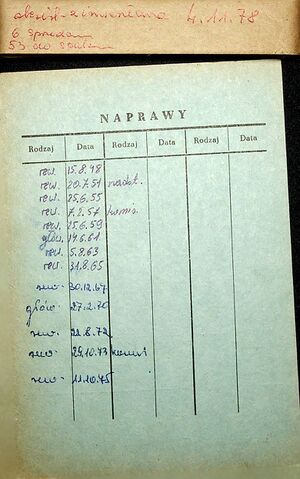 4.11.78
6
53 do
NAPRAWY
Rodzaj Data Rodzaj Data Rodzaj Data
rew. 15.8.48
rew. 20.7.51 nadst.
rew. 25.6.55
rew. 7.2.57 komis.
rew. 25.6.59
głów. 14.6.61
rew. 5.8.63
rew. 31.8.65
rew. 30.12.67
głów. 27.2.70
rew. 22.8.72
rew. 29.10.73
rew. 11.10.75